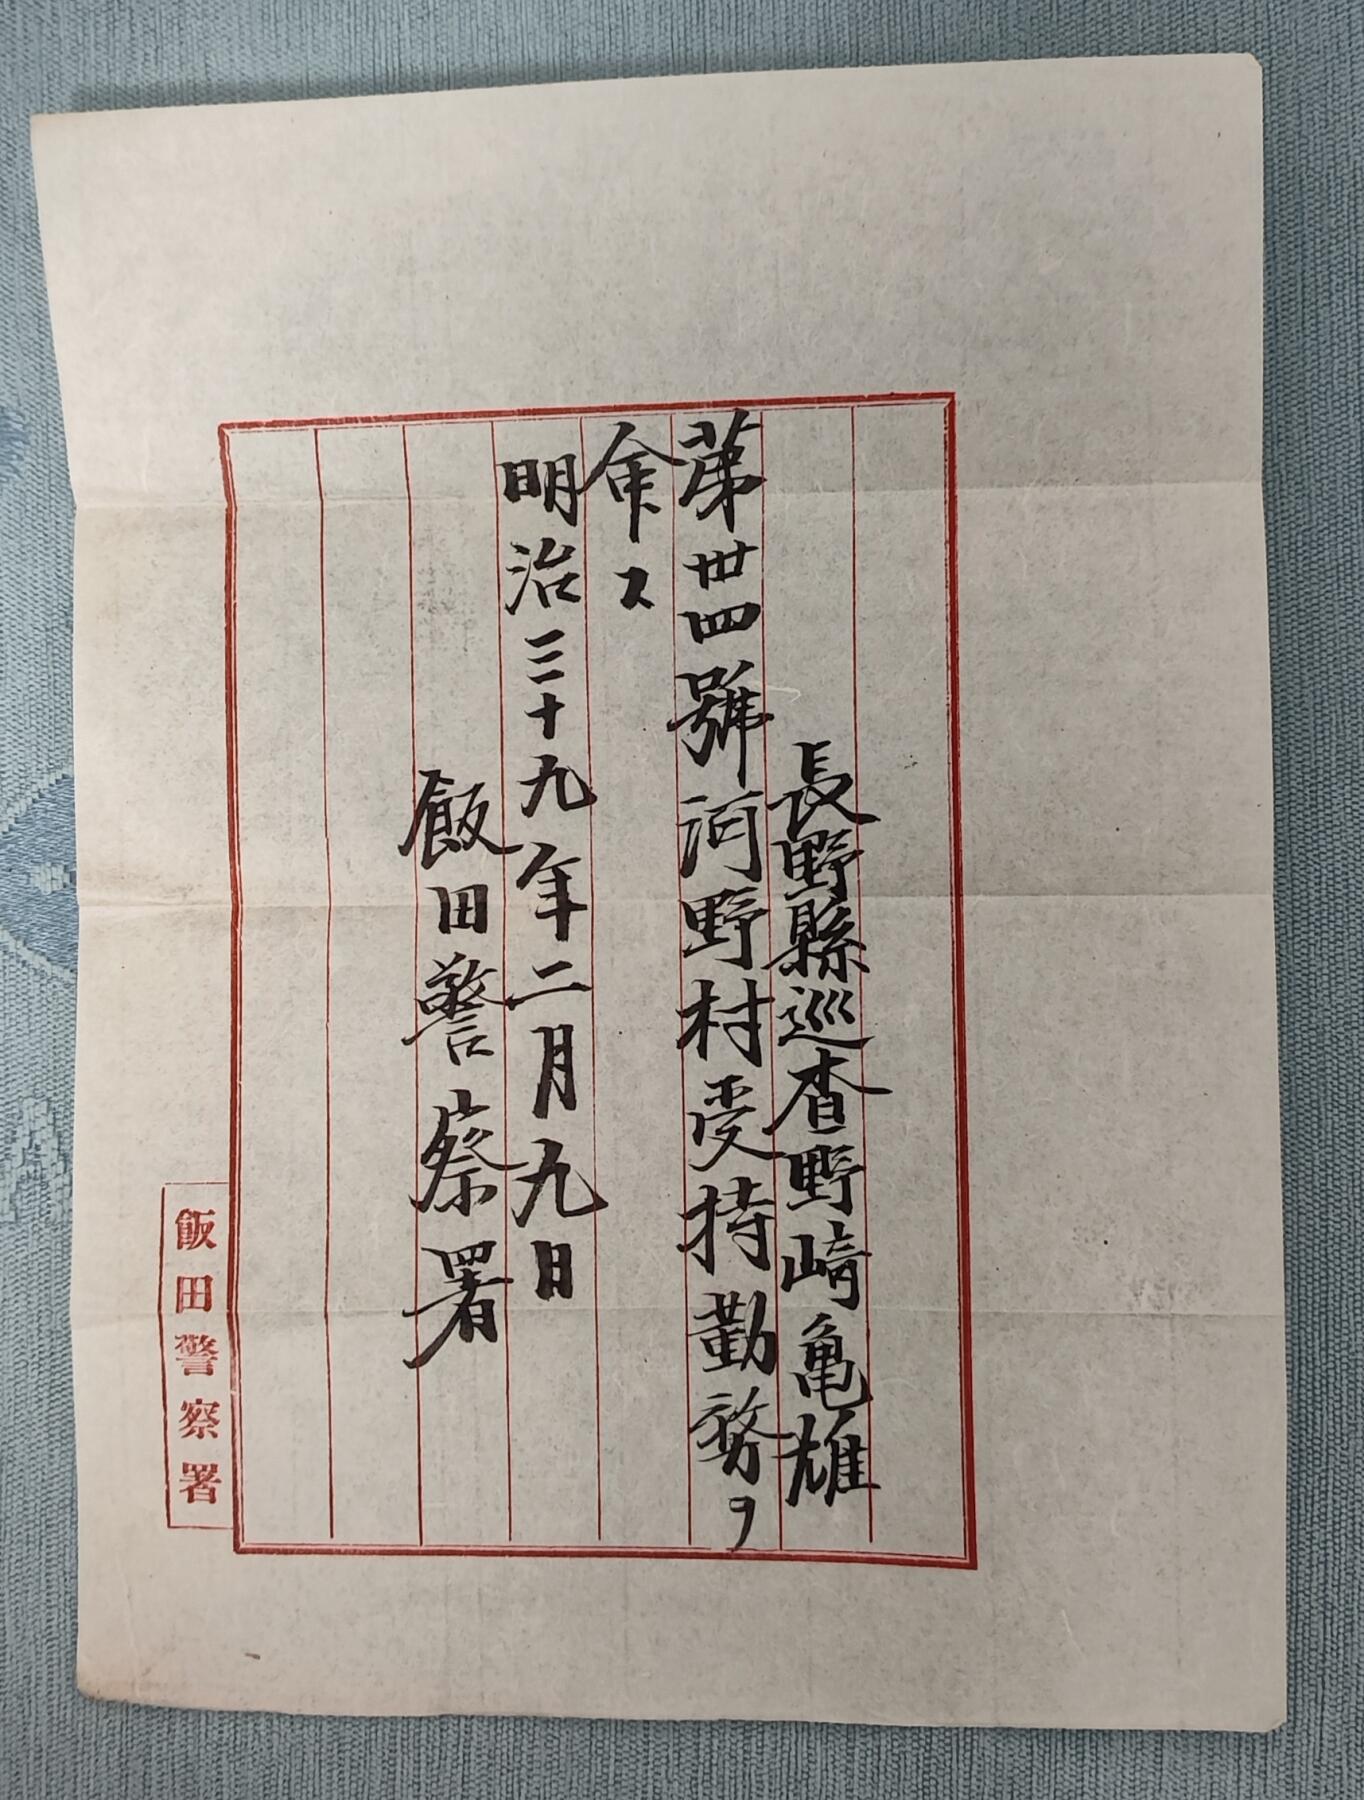 長野縣巡査野﨑亀雄
第卅四號河野村受持勤務ヲ
命ス
明治三十九年二月九日
飯田警察署
飯田警察署